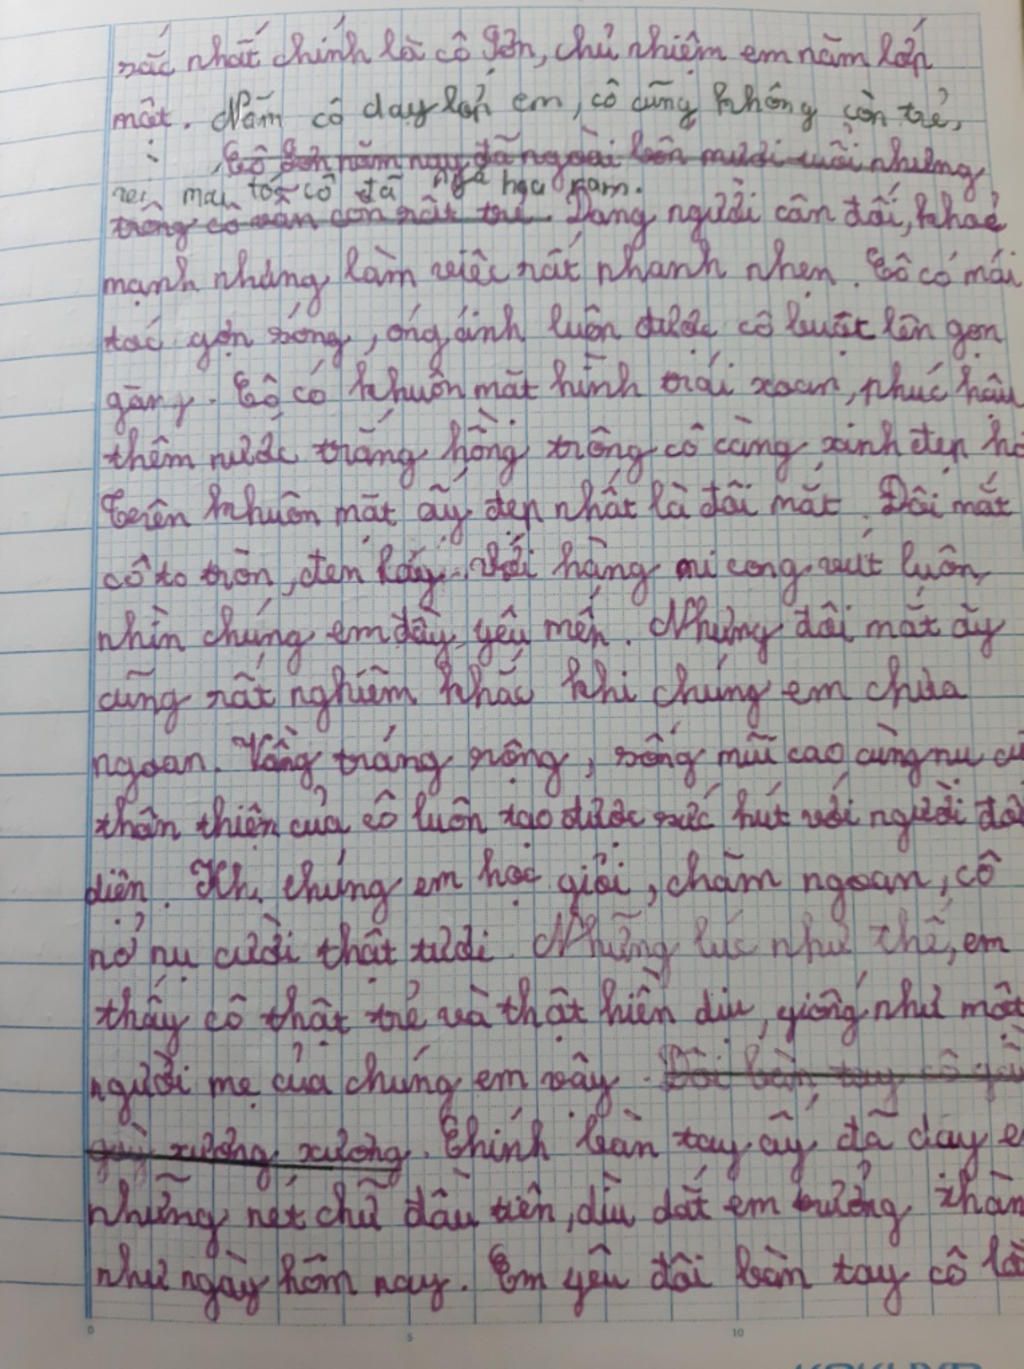 sắc nhất chính là cô Gơn, chủ nhiệm em năm lớp
một. Năm cô dạy lớp em, cô cũng không còn trẻ,
Cô Gơn năm nay đã ngoài bốn mươi tuổi nhưng
mái tóc cô đã ngả hoa râm.
trông cô vẫn còn rất trẻ. Dáng người cân đối, khoẻ
mạnh nhưng làm việc rất nhanh nhẹn. Cô có mái
tóc gợn sóng, óng ánh luôn được cô buộc lên gọn
gàng. Cô có khuôn mặt hình trái xoan, phúc hậu
thêm nước trắng hồng trông cô càng xinh đẹp hơ
Trên khuôn mặt ấy đẹp nhất là đôi mắt. Đôi mắt
cô to tròn, đen láy. Với hàng mi cong vút luôn
nhìn chúng em đầy yêu mến. Nhưng đôi mắt ấy
cũng rất nghiêm khắc khi chúng em chưa
ngoan. Vầng tráng rộng, sống mũi cao cùng nụ cư
thân thiện của cô luôn tạo được sức hút với người đối
diện. Khi chúng em học giỏi, chăm ngoan, cô
nở nụ cười thật tươi. Những lúc như thế, em
thấy cô thật trẻ và thật hiền dịu, giống như một
người mẹ của chúng em vậy. Đôi bàn tay cô gầy
gầy xương xương. Chính bàn tay ấy đã dạy e
những nét chữ đầu tiên, dìu dắt em trưởng thàn
như ngày hôm nay. Em yêu đôi bàn tay cô lắ
0 5 10